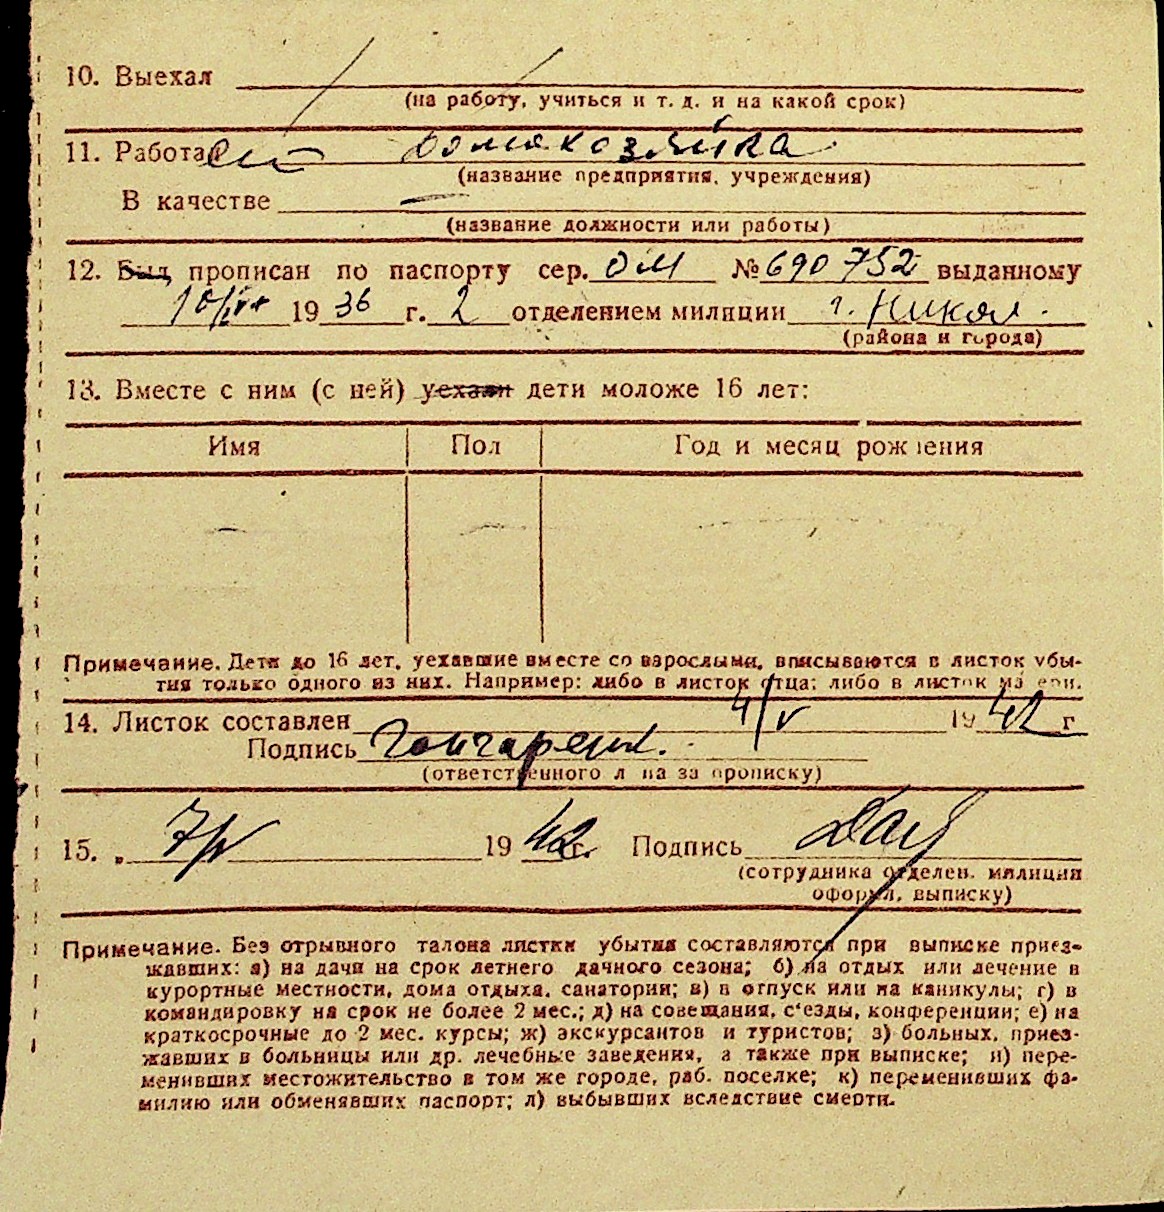 10. Выехал
(на работу, учиться и т. д. и на какой срок)
11. Работает домохозяйка
(название предприятия, учреждения)
В качестве —
(название должности или работы)
12. Был прописан по паспорту сер. ОМ № 690752 выданному
1936 г. 2 отделением милиции г. Никол.
(района и города)
13. Вместе с ним (с ней) уехали дети моложе 16 лет:
Имя Пол Год и месяц рождения
— — —
Примечание. Дети до 16 лет, уехавшие вместе со взрослыми, вписываются в листок убы-
тия только одного из них. Например: либо в листок отца; либо в листок матери.
14. Листок составлен 4/V 1942 г
Подпись Гончаренк.
(ответственного лица за прописку)
15. „ 7/V 1942 г. Подпись
(сотрудника отделен. милиции
оформл. выписку)
Примечание. Без отрывного талона листки убытия составляются при выписке приез-
жавших: а) на дачи на срок летнего дачного сезона; б) на отдых или лечение в
курортные местности, дома отдыха, санатории; в) в отпуск или на каникулы; г) в
командировку на срок не более 2 мес.; д) на совещания, с'езды, конференции; е) на
краткосрочные до 2 мес. курсы; ж) экскурсантов и туристов; з) больных, приез-
жавших в больницы или др. лечебные заведения, а также при выписке; и) пере-
менивших местожительство в том же городе, раб. поселке; к) переменивших фа-
милию или обменявших паспорт; л) выбывших вследствие смерти.